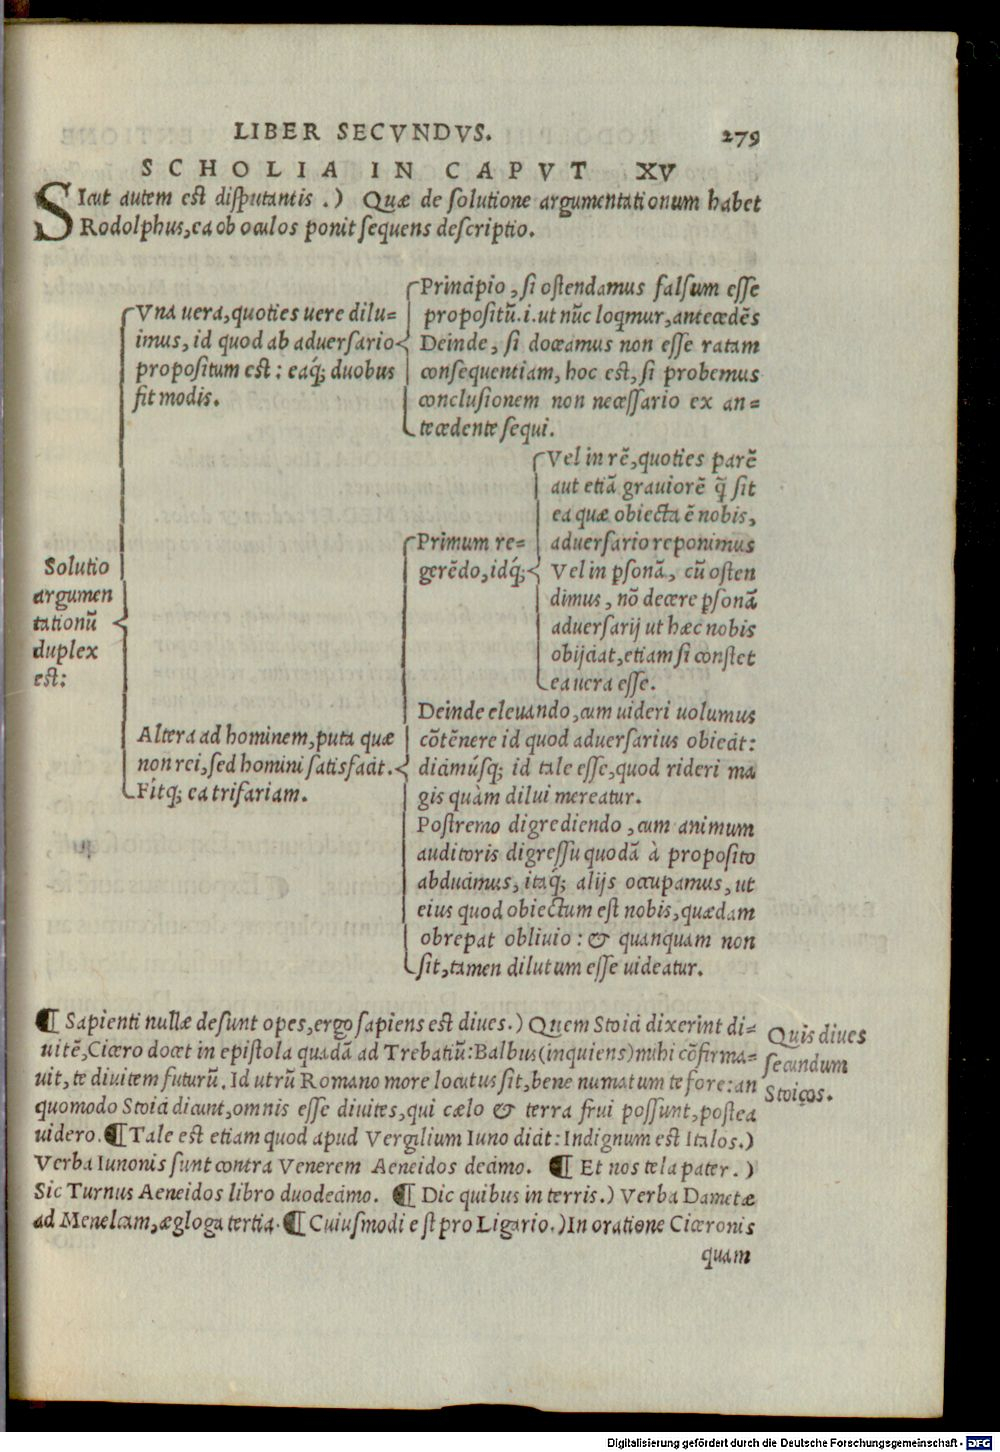 LIBER SECVNDVS. 279
SCHOLIA IN CAPVT XV
SIcut autem est disputantis.) Quæ de solutione argumentationum habet
Rodolphus, ea ob oculos ponit sequens descriptio.
Solutio
argumen
tationū
duplex
est:
Vna uera, quoties uere dilu=
imus, id quod ab aduersario
propositum est: eaq́; duobus
fit modis.
Principio, si ostendamus falsum esse
propositū.i.ut nūc loqmur, antecedēs
Deinde, si doceamus non esse ratam
consequentiam, hoc est, si probemus
conclusionem non necessario ex an=
tecedente sequi.
Altera ad hominem, puta quæ
non rei, sed homini satisfacit.
Fítq; ea trifariam.
Primum re=
gerēdo, idq́;
Vel in rē, quoties parē
aut etiā grauiorē q̃ sit
ea quæ obiecta ē nobis,
aduersario reponimus
Vel in ꝑsonā, cū osten
dimus, nō decere ꝑsonā
aduersarij ut hæc nobis
obijciat, etiam si constet
ea uera esse.
Deinde eleuando, cum uideri uolumus
cōtēnere id quod aduersarius obiecit:
dicimúsq; id tale esse, quod rideri ma
gis quàm dilui mereatur.
Postremo digrediendo, cum animum
auditoris digressu quodā à proposito
abducimus, itaq́; alijs occupamus, ut
eius quod obiectum est nobis, quædam
obrepat obliuio: & quanquam non
sit, tamen dilutum esse uideatur.
¶ Sapienti nullæ desunt opes, ergo sapiens est diues.) Quem Stoici dixerint di=
uitē, Cicero docet in epistola quadā ad Trebatiū: Balbus (inquiens) mihi cōfirma=
uit, te diuitem futurū. Id utrū Romano more locutus sit, bene numatum te fore: an
quomodo Stoici dicunt, omnis esse diuites, qui cælo & terra frui possunt, postea
uidero. ¶ Tale est etiam quod apud Vergilium Iuno dicit: Indignum est Italos.)
Verba Iunonis sunt contra Venerem Aeneidos decimo. ¶ Et nos tela pater.)
Sic Turnus Aeneidos libro duodecimo. ¶ Dic quibus in terris.) Verba Dametæ
ad Menelcam, ægloga tertia. ¶ Cuiusmodi est pro Ligario.) In oratione Ciceronis
quam
Quis diues
secundum
Stoicos.
Digitalisierung gefördert durch die Deutsche Forschungsgemeinschaft - DFG